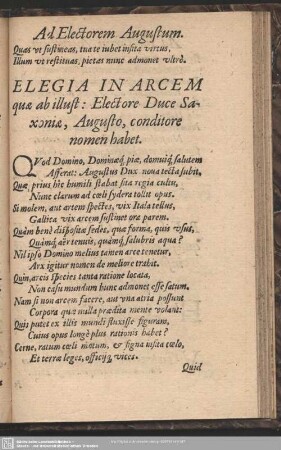 Ad Electorem Augustum.
Quas vt sustineas, tua te iubet insita virtus,
Illum vt restituas, pietas nunc admonet vltrò.
ELEGIA IN ARCEM
quæ ab illust: Electore Duce Sa-
xoniæ, Augusto, conditore
nomen habet.
QVod Domino, Dominæq́; piæ, domuiq́; salutem
Afferat: Augustus Dux noua tecta subit,
Quæ prius hîc humili stabat sita regia cultu,
Nunc clarum ad cœli sydera tollit opus.
Si molem, aut artem spectes, vix Itala tellus,
Gallica vix arcem sustinet ore parem.
Quàm benè disposita sedes, quæ forma, quis vsus,
Quàmq́; aër tenuis, quamq́; salubris aqua?
Nil ipso Domino melius tamen arce tenetur,
Arx igitur nomen de meliore trahit.
Quin, arcis species tanta ratione locata,
Non casu mundum hunc admonet esse satum.
Nam si non arcem facere, aut vna atria possunt
Corpora quæ nulla prædita mente volant:
Quis putet ex illis mundi fluxisse figuram,
Cuius opus longè plus rationis habet?
Cerne, ratum cœli motum, & signa cœlo,
Et terræ leges, officijq́; vices.
Quid